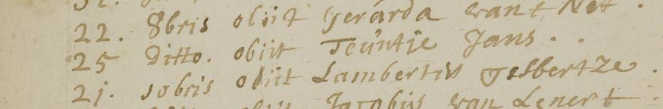 22. 8bris obiit Gerarda van t Net.
25 Ditto. obiit Teuntje Jans.
21. 10bris obiit Lambertus Gelbertze.
obiit Jacobus van Lenert